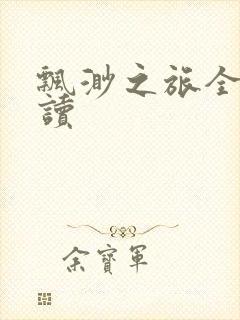 飄渺之旅全
讀
余寶軍